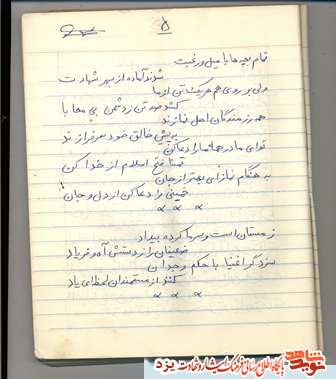 ۵
تمام بچه ها با میل و رغبت
شوند آماده از بهر شهادت
ولی بر روی هم هر یک تن از ما
کشد صد تن ز دشمن بی محابا
همه رزمندگان اهل نمازند
به پیش خالق خود سرفرازند
توای مادر همه ما را دعا کن
تمنا فتح اسلام از خدا کن
به هنگام نمازای بهتر از جان
خمینی را دعا کن از دل و جان
زمستان است و سرما کرده بیداد
ضعیفان را ز دستش آه و فریاد
سزد گر اغنیا با حکم وجدان
کنند از مستمندان لحظه ای یاد
نوید شاهد
پایگاه اطلاع رسانی فرهنگ ایثار و شهادت یزد